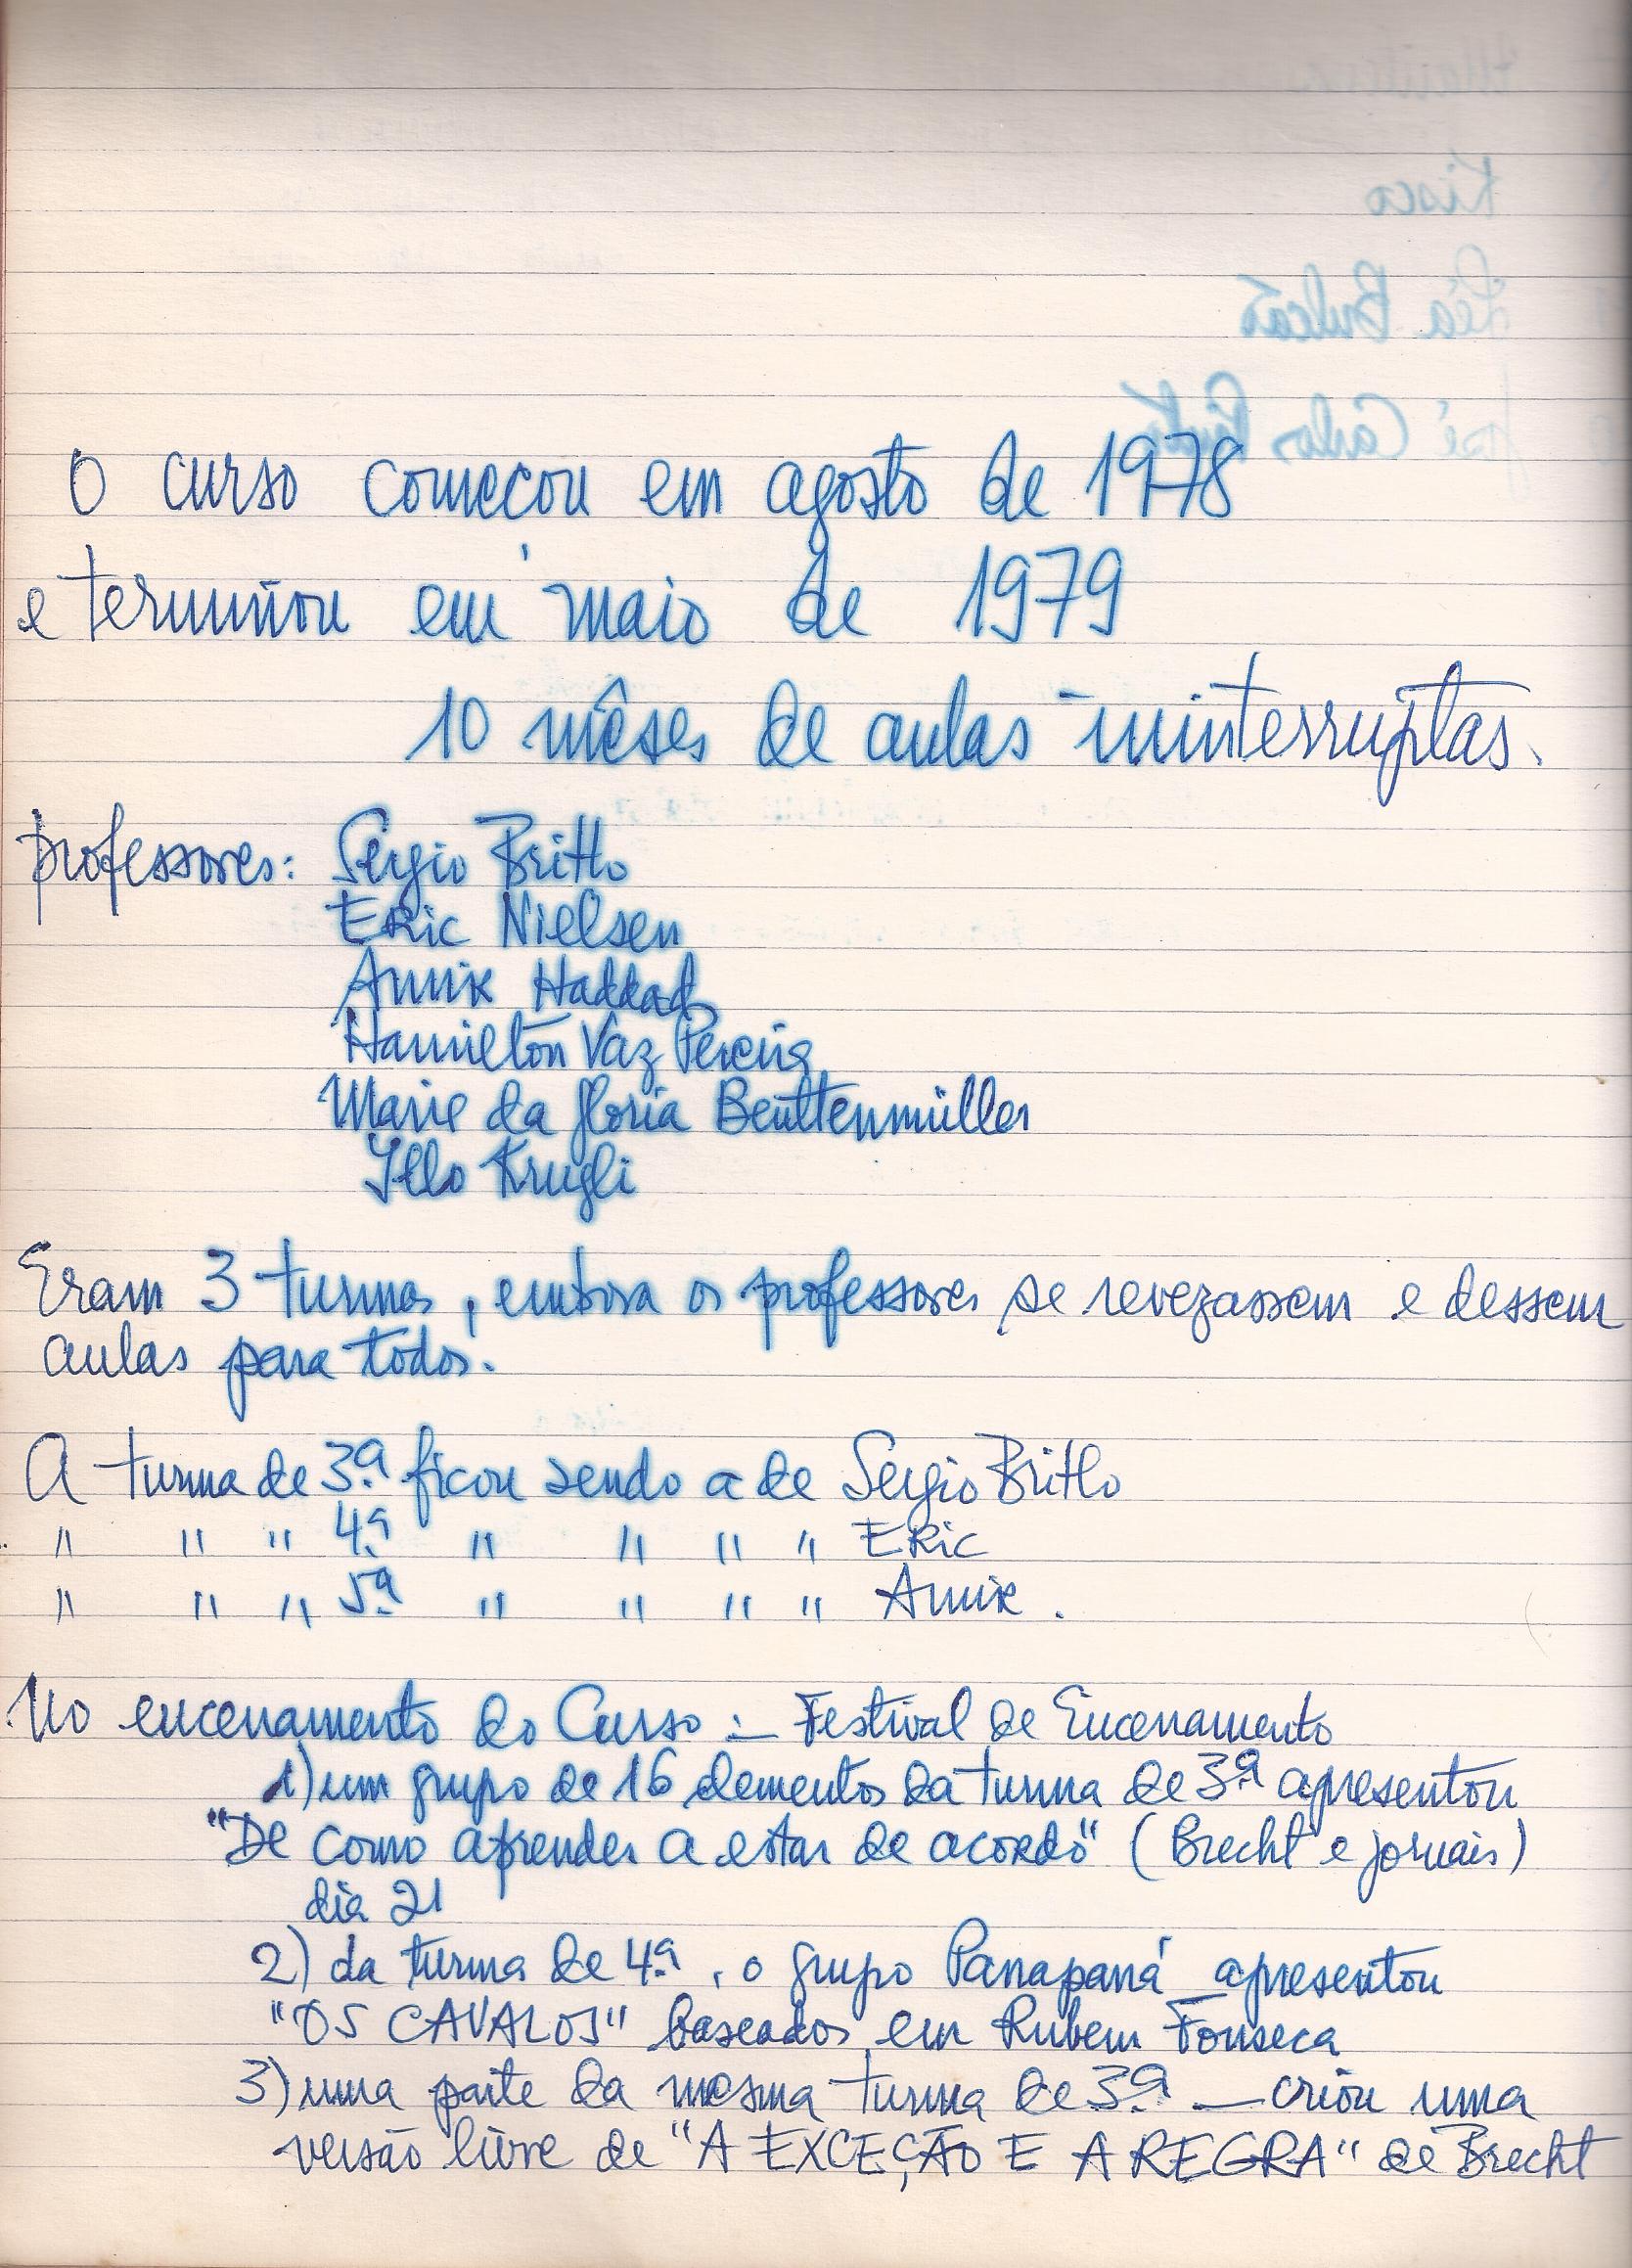 O curso começou em agosto de 1978
e terminou em maio de 1979
10 mêses de aulas ininterruptas.
professores: Sergio Britto
Eric Nielsen
Amir Haddad
Hamilton Vaz Pereira
Maria da Gloria Beuttenmüller
Ilo Krugli
Eram 3 turmas, embora os professores se revezassem e dessem
aulas para todos.
A turma de 3ª ficou sendo a de Sergio Britto
" " " 4ª " " " " Eric
" " " 5ª " " " " Amir.
No encerramento do Curso :_ Festival de Encerramento
1) um grupo de 16 elementos da turma de 3ª apresentou
"De como aprender a estar de acordo" (Brecht e jornais)
dia 21
2) da turma de 4ª, o grupo Panapaná apresentou
"OS CAVALOS" baseados em Rubem Fonseca
3) uma parte da mesma turma de 3ª _ criou uma
versão livre de "A EXCEÇÃO E A REGRA" de Brecht